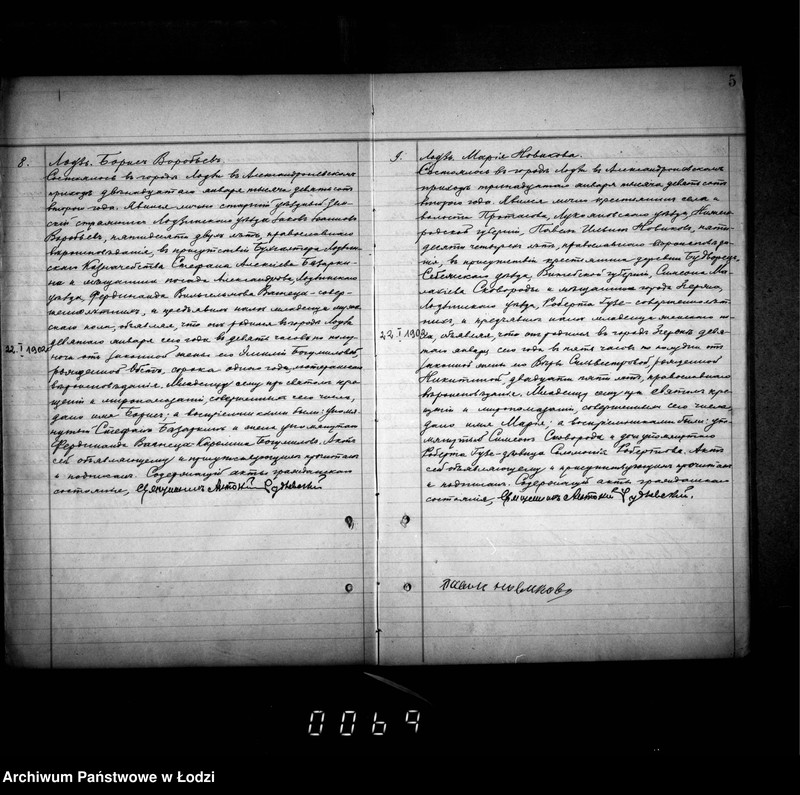 5
8.
Лодзь. Борисъ Воробьевъ
Состоялось въ городѣ Лодзи въ Александроневскомъ
приходѣ двѣнадцатаго января тысяча девятьсотъ
второго года. Явился лично старшій уѣздный
Лодзинскаго уѣзда Яковъ
Воробьевъ, пятидесяти двухъ лѣтъ, православнаго
вѣроисповѣданія, въ присутствіи Бухгалтера Лодзин-
скаго Казначейства Стефана Алексѣева Базарки-
на и мѣщанина посада Александрова, Лодзинскаго
уѣзда, Фердинанда Вильгельмова совер-
шеннолѣтнихъ, и предъявилъ намъ младенца муж-
скаго пола, объявляя, что онъ родился въ городѣ Лодзи
22. I 1902
девятаго января сего года въ девять часовъ по полу-
ночи отъ законной жены его Эмиліи Богумиловой,
рожденной сорока одного года, лютеранскаго
вѣроисповѣданія. Младенцу сему при святомъ кре-
щеніи и миропомазаніи, совершенныхъ сего числа,
дано имя Борисъ, а воспріемниками были: упомя-
нутый Стефанъ Базаркинъ и жена упомянутаго
Фердинанда Каролина Богумилова. Актъ
сей объявляющему и присутствующимъ прочитанъ
и подписанъ. Содержащій акты гражданскаго
состоянія, Священникъ Антоній Рудлевскій
9.
Лодзь. Марія Новикова.
Состоялось въ городѣ Лодзи въ Александроневскомъ
приходѣ тринадцатаго января тысяча девятьсотъ
второго года. Явился лично крестьянинъ села и
волости Протасова, Лукояновскаго уѣзда, Нижего-
родской губерніи, Павелъ Ильинъ Новиковъ, пяти-
десяти четырехъ лѣтъ, православнаго вѣроисповѣда-
нія, въ присутствіи крестьянина деревни
Себежскаго уѣзда, Витебской губерніи, Симеона
Сковороды и мѣщанина города Згержа,
Лодзинскаго уѣзда, Роберта Гузе совершеннолѣт-
нихъ, и предъявилъ намъ младенца женскаго по-
22. I 1902
ла, объявляя, что онъ родился въ городѣ Згержѣ девя-
таго января сего года въ пять часовъ по полудни отъ
законной жены его Вѣры Сильвестровой, рожденной
Никитиной, двадцати пяти лѣтъ, православнаго
вѣроисповѣданія. Младенцу сему при святомъ кре-
щеніи и миропомазаніи, совершенныхъ сего числа,
дано имя Марія, а воспріемниками были: упо-
мянутый Симеонъ Сковорода и дочь упомянутаго
Роберта Гузе дѣвица Саломонія Робертова. Актъ
сей объявляющему и присутствующимъ прочитанъ
и подписанъ. Содержащій акты гражданскаго
состоянія, Священникъ Антоній Рудлевскій.
Павелъ Новиковъ
0069
Archiwum Państwowe w Łodzi